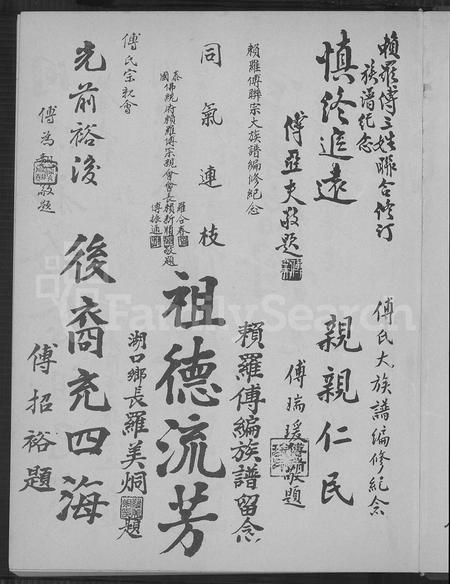 賴羅傅三姓聯合修訂
族譜紀念
慎終追遠
傅亞夫敬題
賴羅傅聯宗大族譜編修紀念
同氣連枝
泰國佛統府賴羅傅宗親會會長賴新順敬題
羅合春
傅振通
傅氏宗親會
光前裕後
傅為
敬題
傅氏大族譜編修紀念
親親仁民
傅瑞瑗
敬題
賴羅傅編族譜留念
祖德流芳
湖口鄉長羅美炯
題
後裔充四海
傅招裕題
FamilySearch